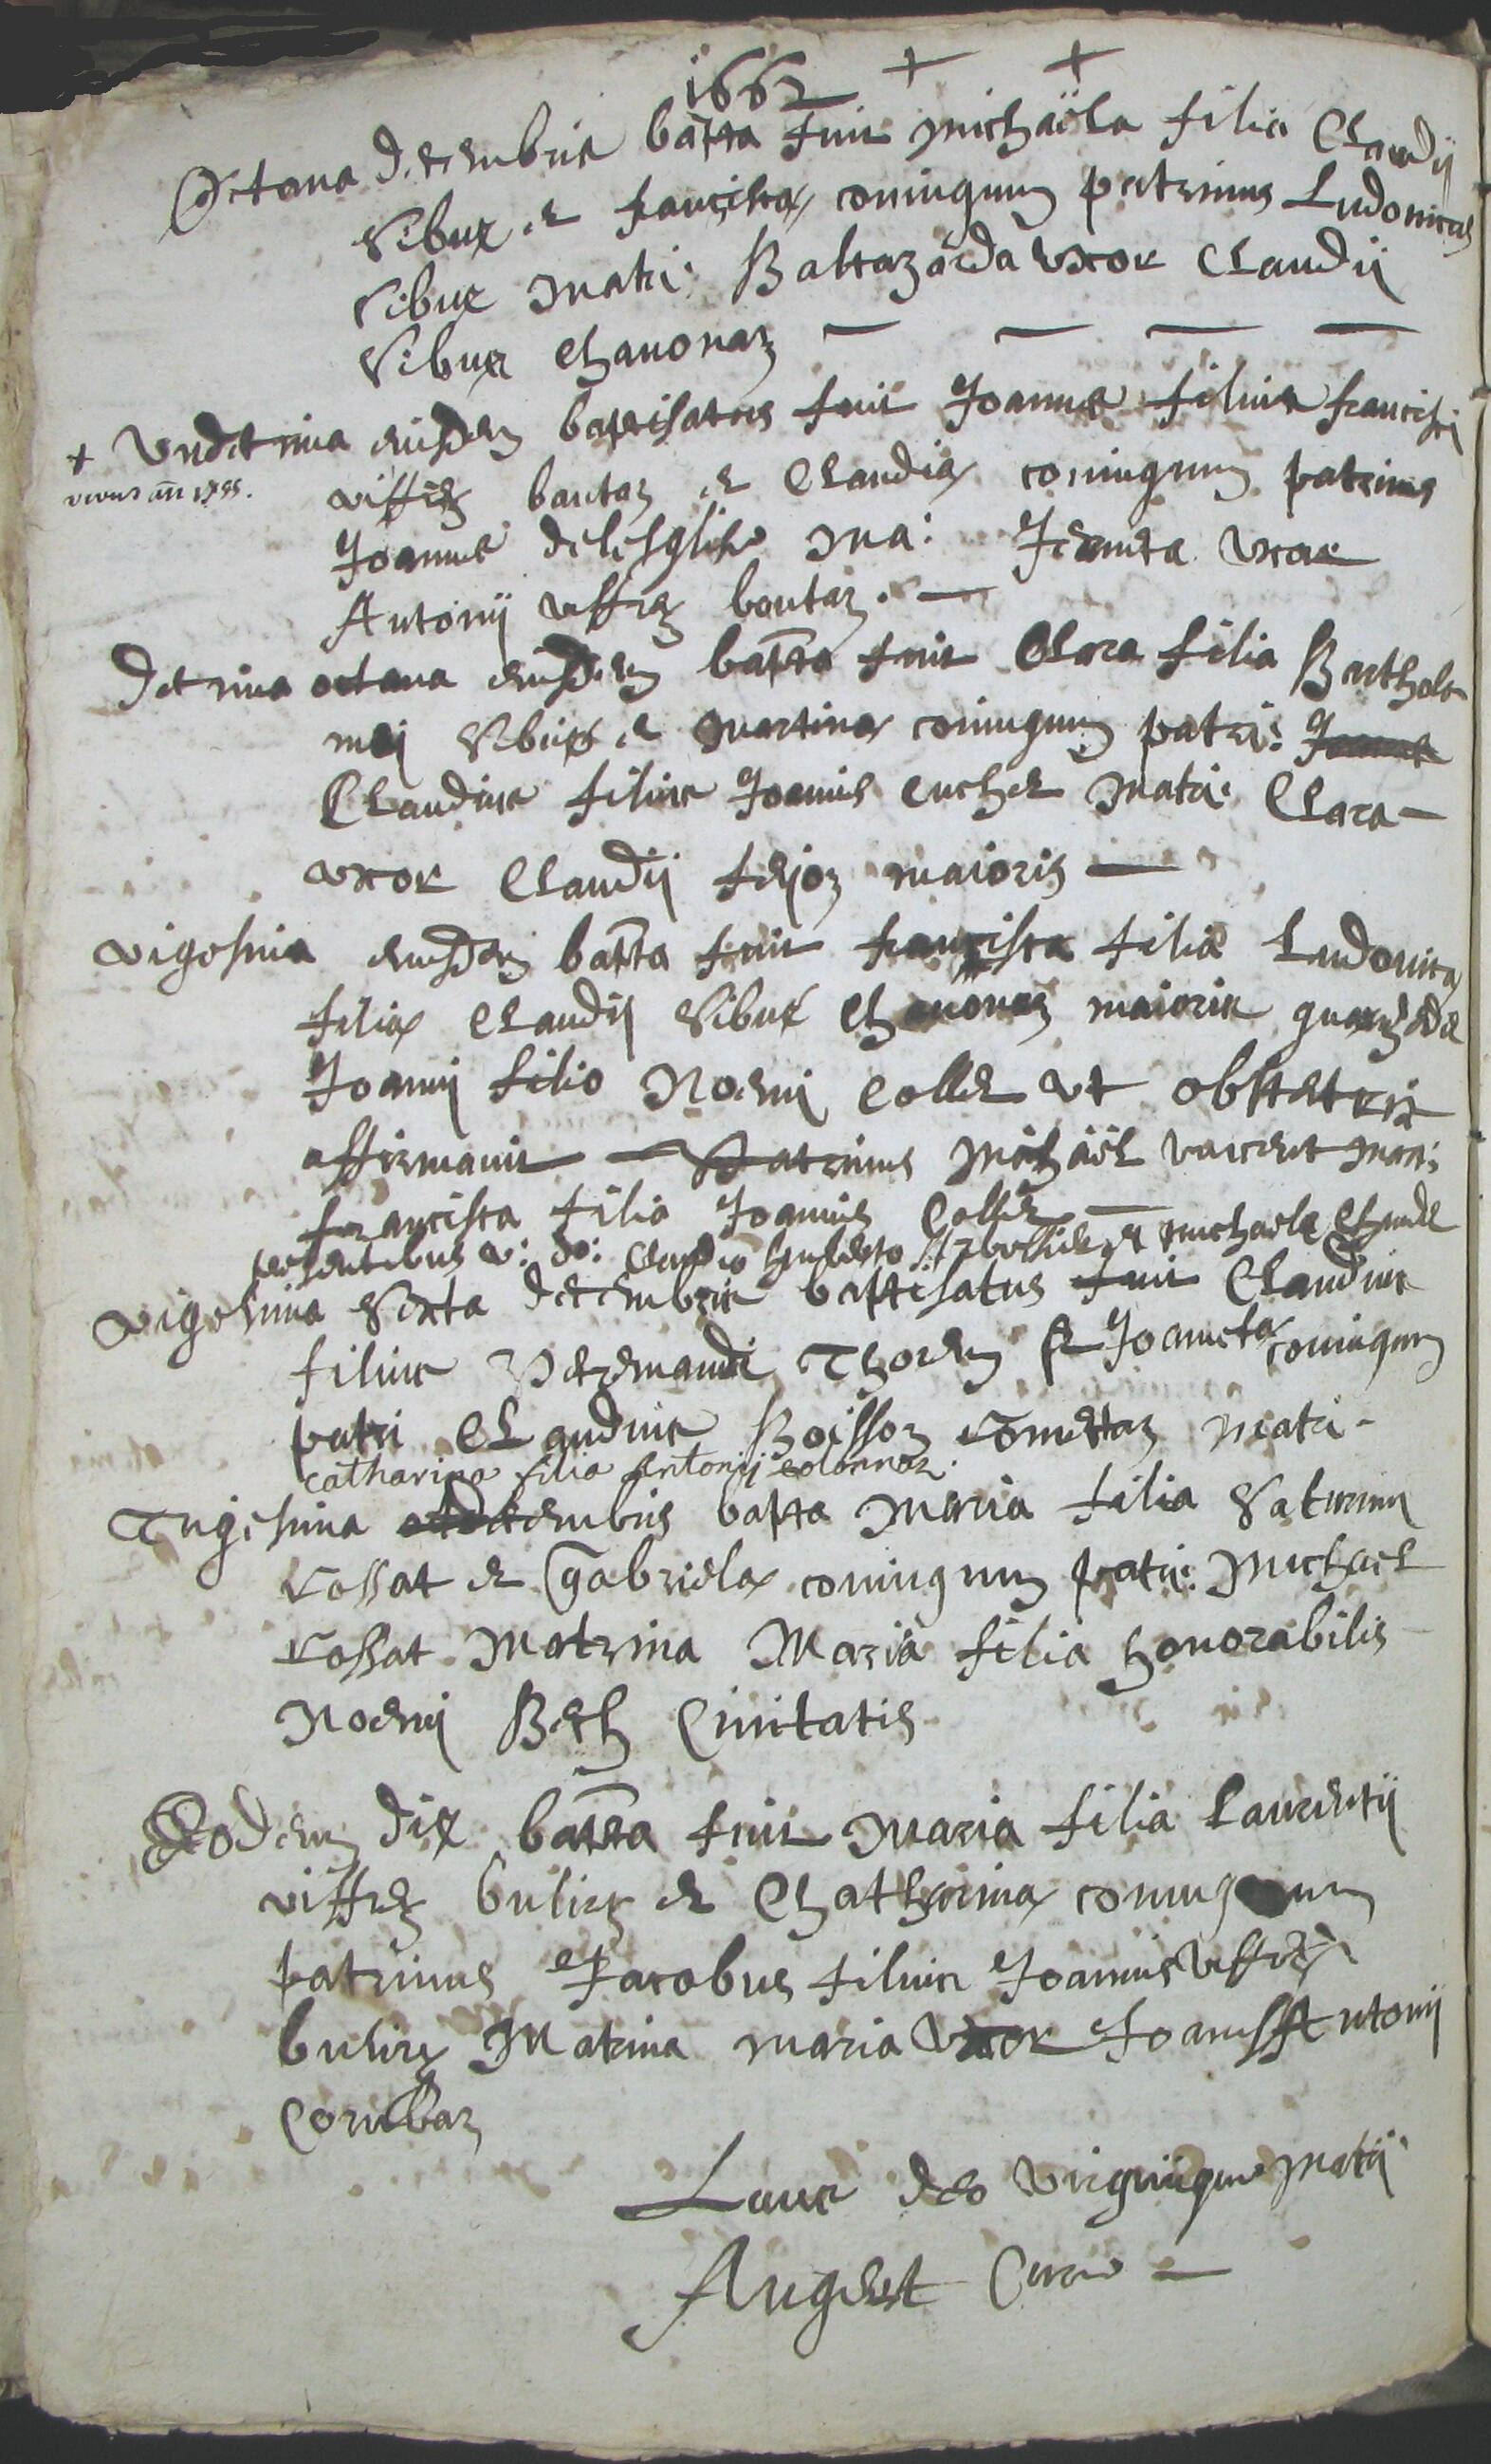 1662 + +
Octava decembris bapta fuit michaëla filia Claudii
Vibux et franciscæ coniugum patrinus Ludovicus
Vibux matri: Baltazarda uxor Claudii
Vibux Chavonaz — — — —
+ Undecima eiusdem baptisatus fuit Joannes filius francisci
vivus an 1755.
viffrey bautaz et Claudiæ coniugum patrinus
Joannes delesglise ma: Jeanneta uxor
Antonii viffrey bautaz. —
Decima octava eiusdem bapta fuit Clara filia Bartholo
mei Vibux et Martinæ coniugum patri:
Claudius filius Joannis cuchet matri: Clara —
uxor Claudii feijoz maioris —
vigesima eiusdem bapta fuit francisca filia Ludovicæ
filiæ Claudii Vibux Chavonaz maioris
Joanni filio Noemi Collet ut obstetrix
affirmavit — Patrinus Michaël matri:
francisca filia Joannis Collet —
præsentibus v: do: Claudio humberto et michaele
vigesima sexta decembris baptisatus fuit Claudius
filius Petremandi Thorens et Joannetæ coniugum
patri Claudius Boisson Comettaz matri-
Catharina filia Antonii colonnaz.
Trigesima decembris bapta Maria filia Saturnini
Cossat et Gabrielæ coniugum patri: Michael
Cossat Matrina Maria filia honorabilis
Noemi Civitatis
Eodem die bapta fuit Maria filia Laurentii
viffrey buliez et Chatharinæ coniugum
patrinus Jacobus filius Joannis viffrey
buliez Matrina maria uxor Joannis Antonii
Cornibaz
Laus deo virginique matri
Augert Curé —